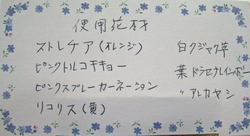 使用花材
ストレチア(オレンジ)
ピンクトルコキキョー
ピンクスプレーカーネーション
リコリス(黄)
白クジャク草
葉ドラセナレインボー
〃アレカヤシ